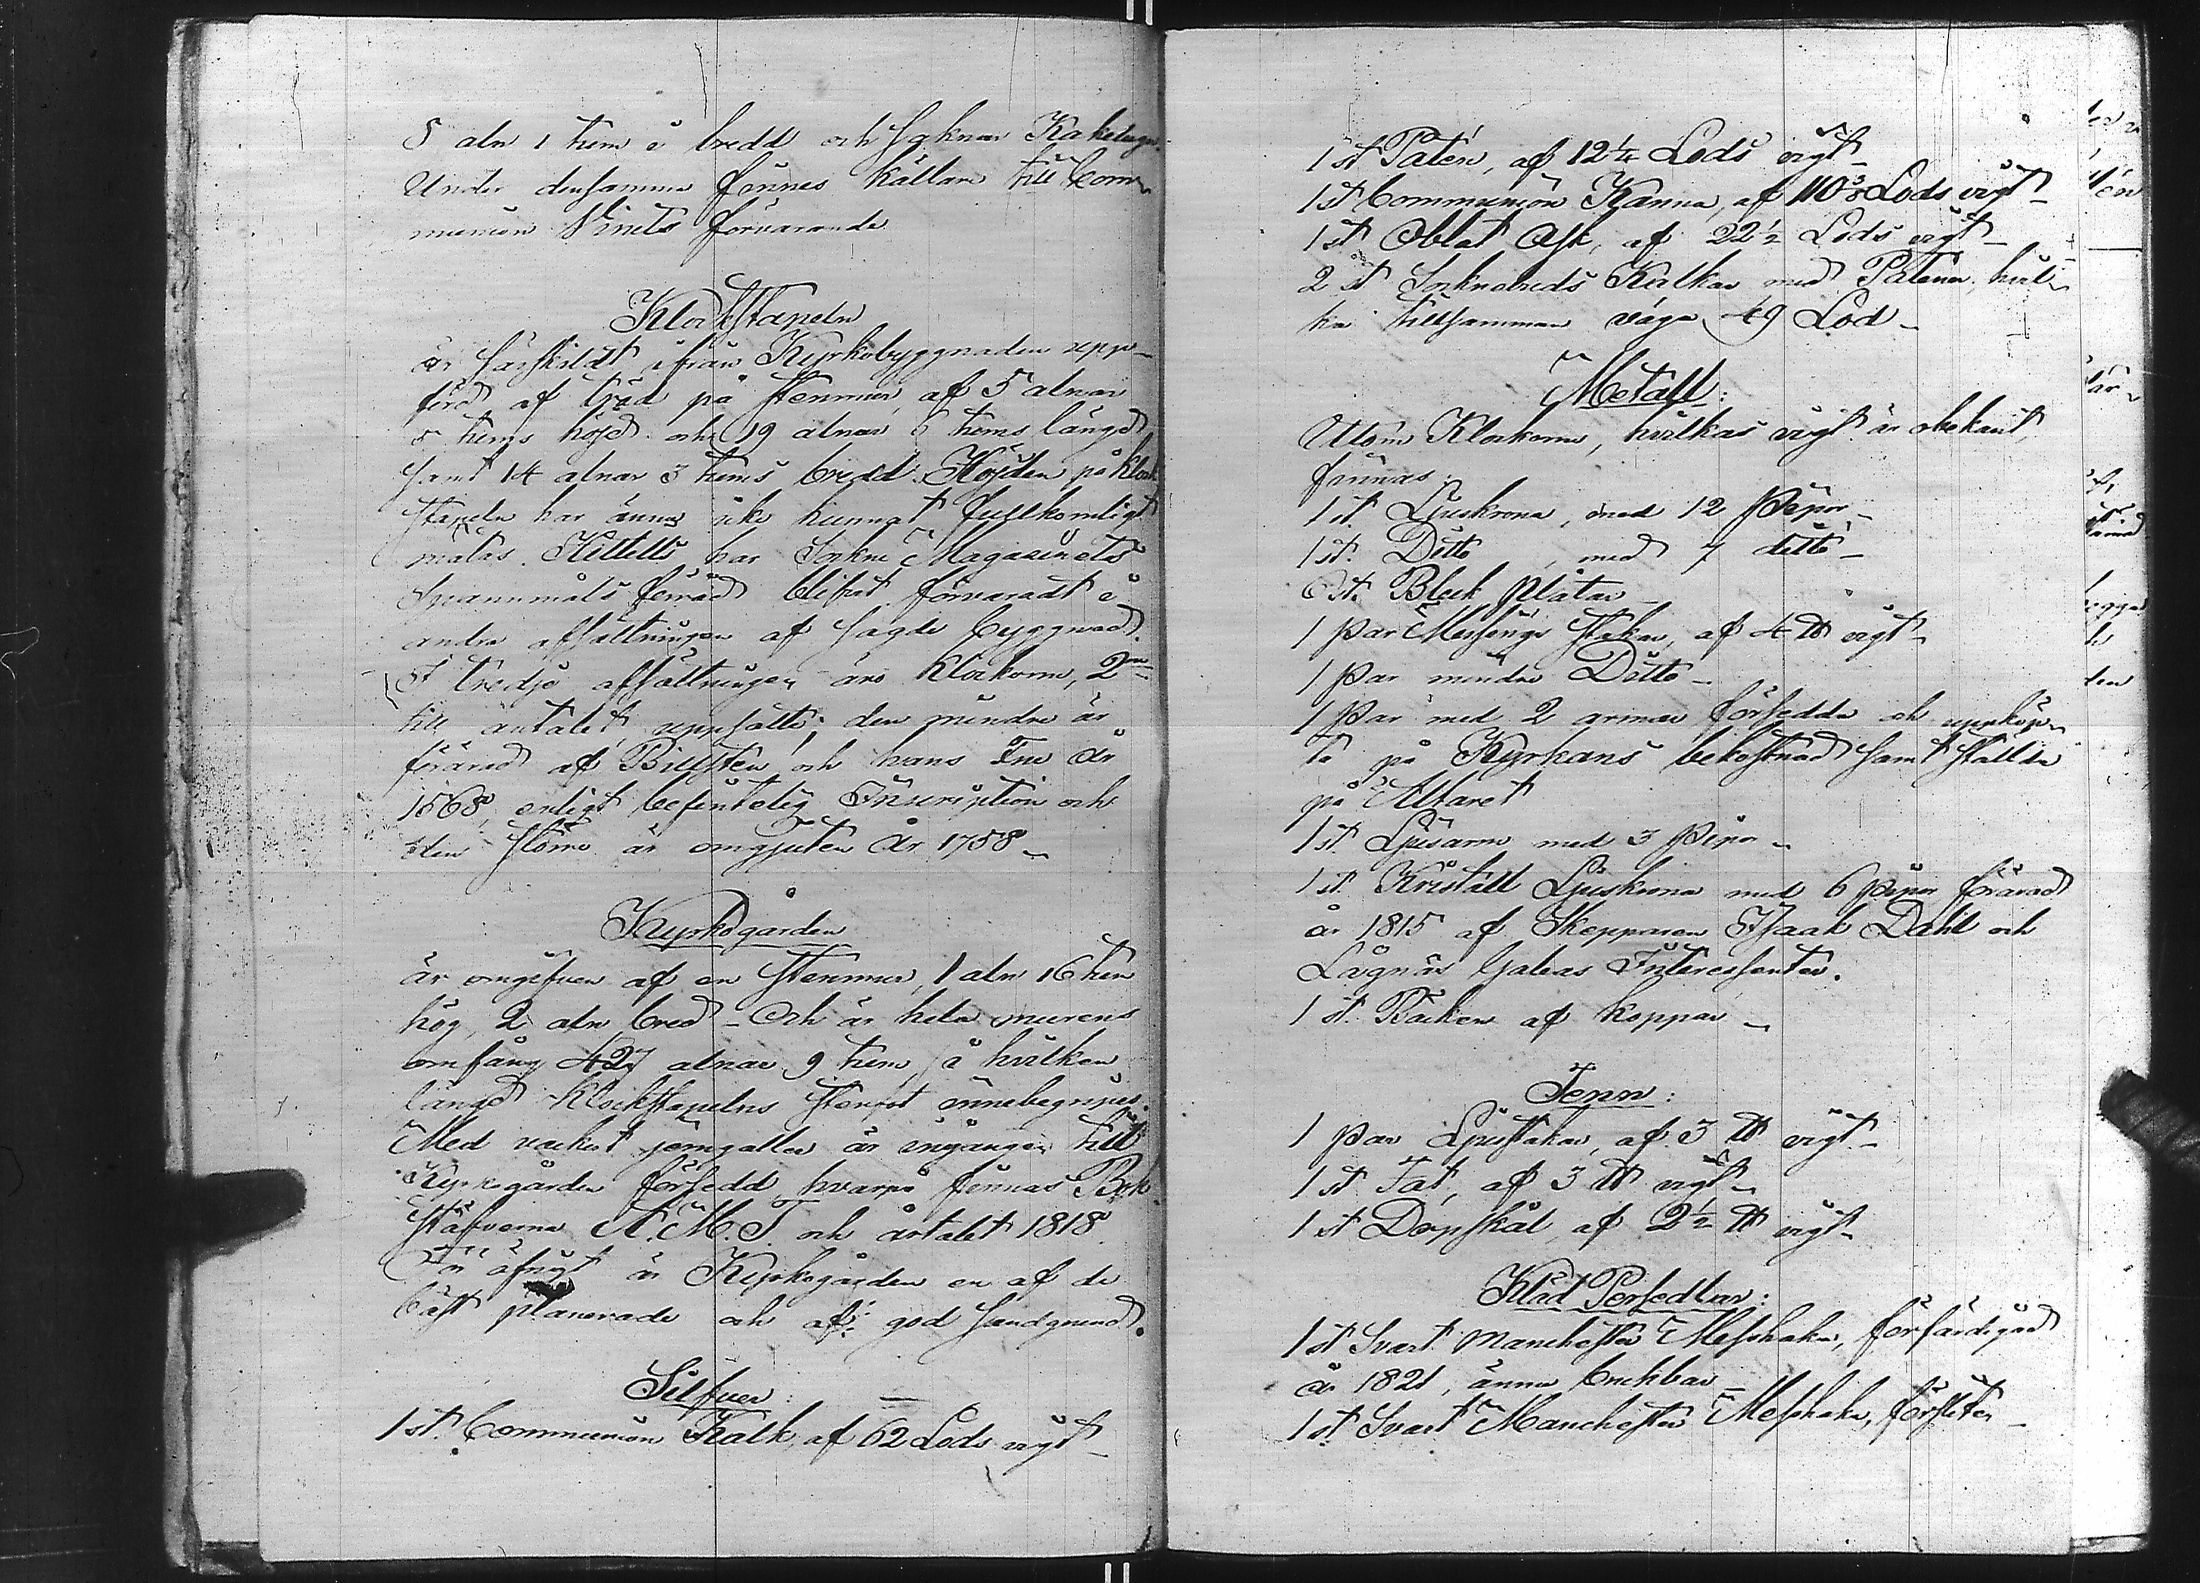 8 aln 1 tum i bredd och saknar Kakelugn.
Under densamma finnes källare till Com-
munion Vinets förvarande
Klockstapeln
är särskildt ifrån Kyrkobyggnaden upp-
förd af träd på stenmur, af 5 alnar
5 tums höjd och 19 alnar 6 tums längd
samt 14 alnar 3 tums bredd. Höjden på Klock
stapeln har ännu icke kunnat fullkomligt
mätas. Hittills har Sockne Magasinets
Spannmåls förråd blifvit förvaradt i
andra afsättningen af sagde byggnad.
I tredje afsättningen äro Klockorna, 2ne
till antalet, uppsatte; den mindre är
förärad af Billsten och hans Fru år
1568, enligt befintelig Inscription och
den större är omgjuten år 1758
Kyrkogården
är omgifven af en stenmur, 1 aln 16 tum
hög, 2 aln bred - Och är hela murens
omfång 427 alnar 9 tum, i hvilken
längd Klockstapelns stenfot innebegripes.
Med vackert jerngaller är ingången till
Kyrkogården försedd, hvarpå finnas Bok-
stäfverna N. M. T. och årtalet 1818.
För öfrigt är Kyrkogården en af de
bäst planerade och af god sandgrund.
Silfver:
1 st. Communion Kalk, af 62 Lods vigt
1 st Patén, af 12 1/4 Lods vigt
1 st Communion Kanna, af 110 3/8 Lods vigt
1 st Oblat Ask, af 22 1/2 Lods vigt
2 st Socknebuds Kalkar med Patener, hvil-
ka tillsamman väga 49 Lod
Metall:
Utom Klockorna, hvilkas vigt är obekant,
finnas
1 st. Ljuskrona, med 12 Pipor
1 st. Ditto, med 7 ditto
6 st. Bleck Plåtar
1 Par Messings Stakar, af 4 ℔ vigt
1 Par mindre Ditto
1 Par med 2 armar försedda och uppköp-
ta på Kyrkans bekostnad samt ställda
på Altaret
1 st. Ljusarm med 3 Pipor
1 st. Kristall Ljuskrona med 6 Pipor förärad
år 1815 af Skepparen Isaak Dahl och
Lågnäs Galeas Interessenter.
1 st. Bäcken af koppar
Tenn:
1 Par Ljusstakar, af 3 ℔ vigt
1 st Fat, af 3 ℔ vigt
1 st Dopskål, af 2 1/2 ℔ vigt
Kläd Persedlar:
1 st Svart Manchester Messhake, förfärdigad
år 1821, ännu brukbar
1 st. Svart Manchester Messhake, försliten